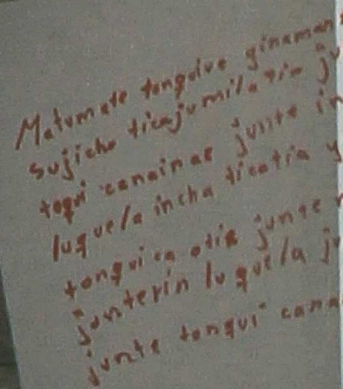 Matumate tonquive ginaman
sujicho ticajumila tia ju
toqui canainas junte in
luquela incha ticatia y
tonqui ca otia junte
junterin luquela ju
junte tonqui cana